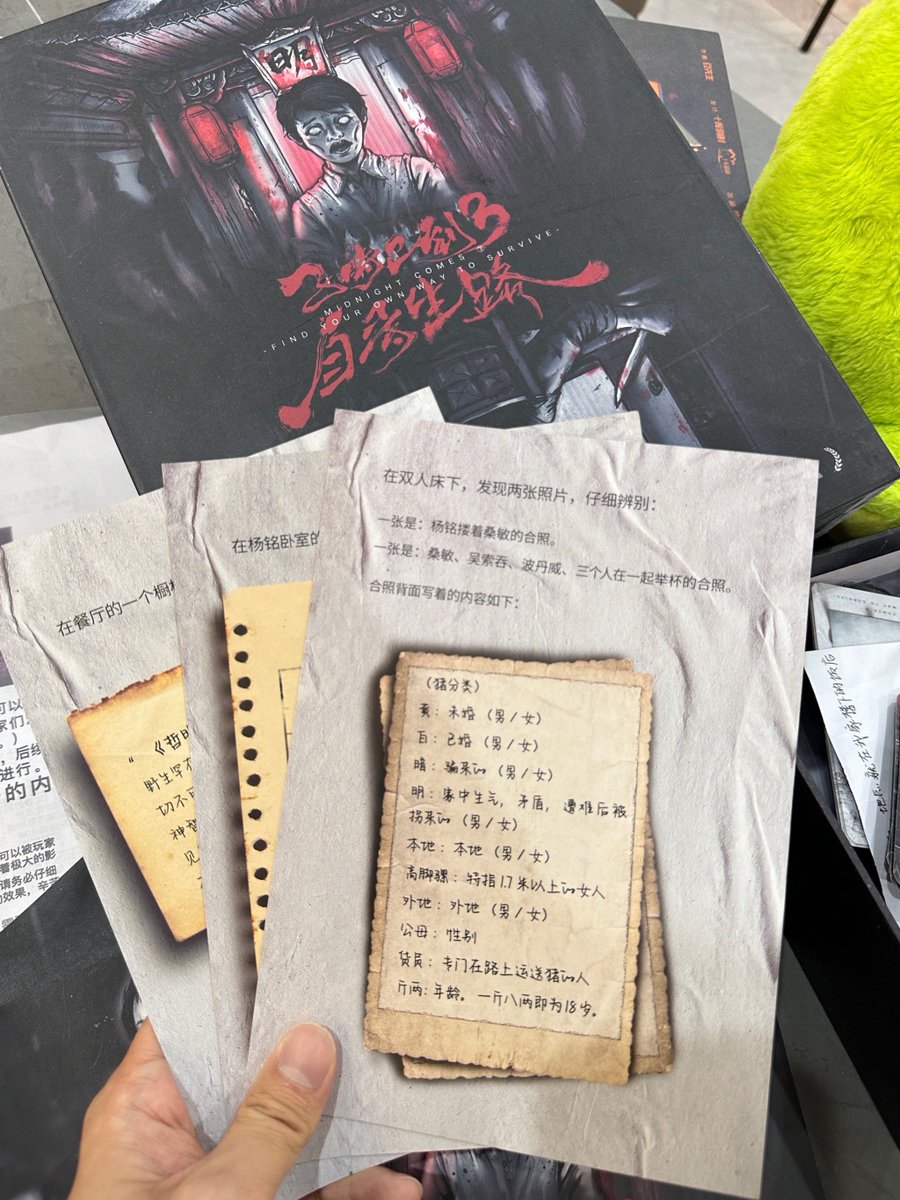 明
子时已到3
MIDNIGHT COMES ③
自寻生路
-FIND YOUR OWN WAY TO SURVIVE-
在双人床下，发现两张照片，仔细辨别：
一张是：杨铭搂着桑敏的合照。
一张是：桑敏、吴索吞、波丹威、三个人在一起举杯的合照。
合照背面写着的内容如下：
（猪分类）
黄：未婚（男/女）
白：已婚（男/女）
暗：骗来的（男/女）
明：家中生气，矛盾，遭难后被
拐来的（男/女）
本地：本地（男/女）
高脚骡：特指1.7米以上的女人
外地：外地（男/女）
公母：性别
货员：专门在路上运送猪的人
斤两：年龄。一斤八两即为18岁。
在杨铭卧室的
在餐厅的一个橱
野生罕
切不可
神智
见
可以
家们
，后续
进行。
的内
可以被玩家
着极大的影
请务必仔细
效果，